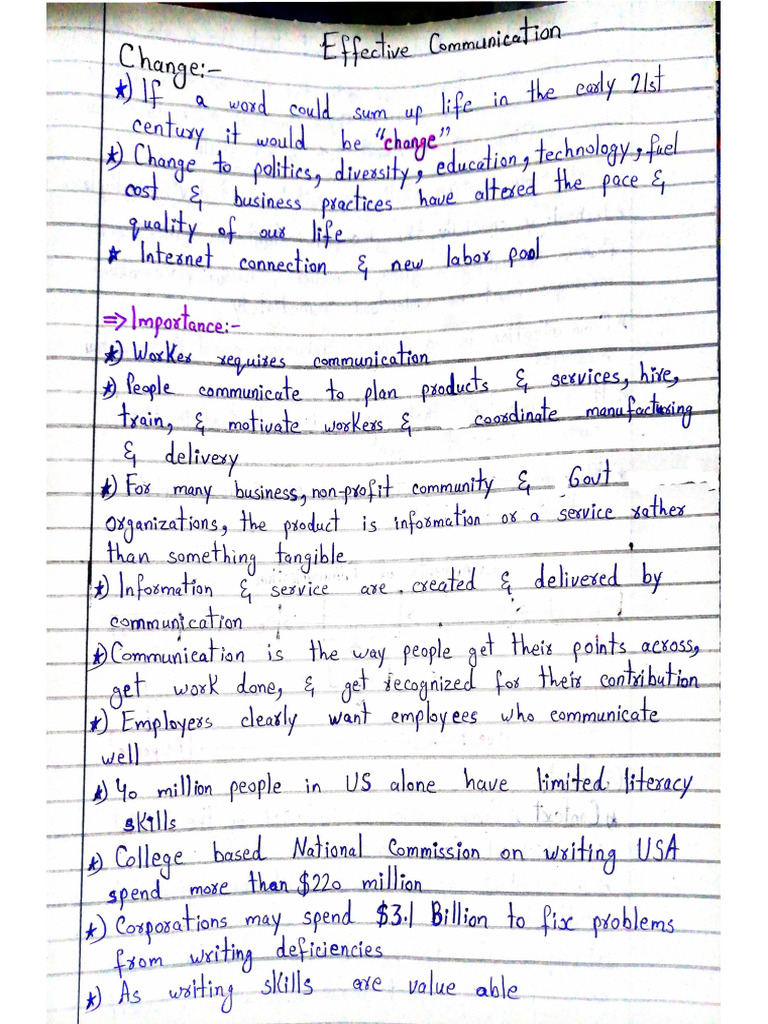 Effective Communication
Change:-
*) If a word could sum up life in the early 21st
century it would be "change"
*) Change to politics, diversity, education, technology, fuel
cost & business practices have altered the pace &
quality of our life
* Internet connection & new labor pool
=> Importance:-
*) Worker requires communication
*) People communicate to plan products & services, hire,
train, & motivate workers & coordinate manufacturing
& delivery
*) For many business, non-profit community & Govt
organizations, the product is information or a service rather
than something tangible
*) Information & service are created & delivered by
communication
*) Communication is the way people get their points across,
get work done, & get recognized for their contribution
*) Employers clearly want employees who communicate
well
*) 40 million people in US alone have limited literacy
skills
*) College based National Commission on writing USA
spend more than $220 million
*) Corporations may spend $3.1 Billion to fix problems
from writing deficiencies
*) As writing skills are value able